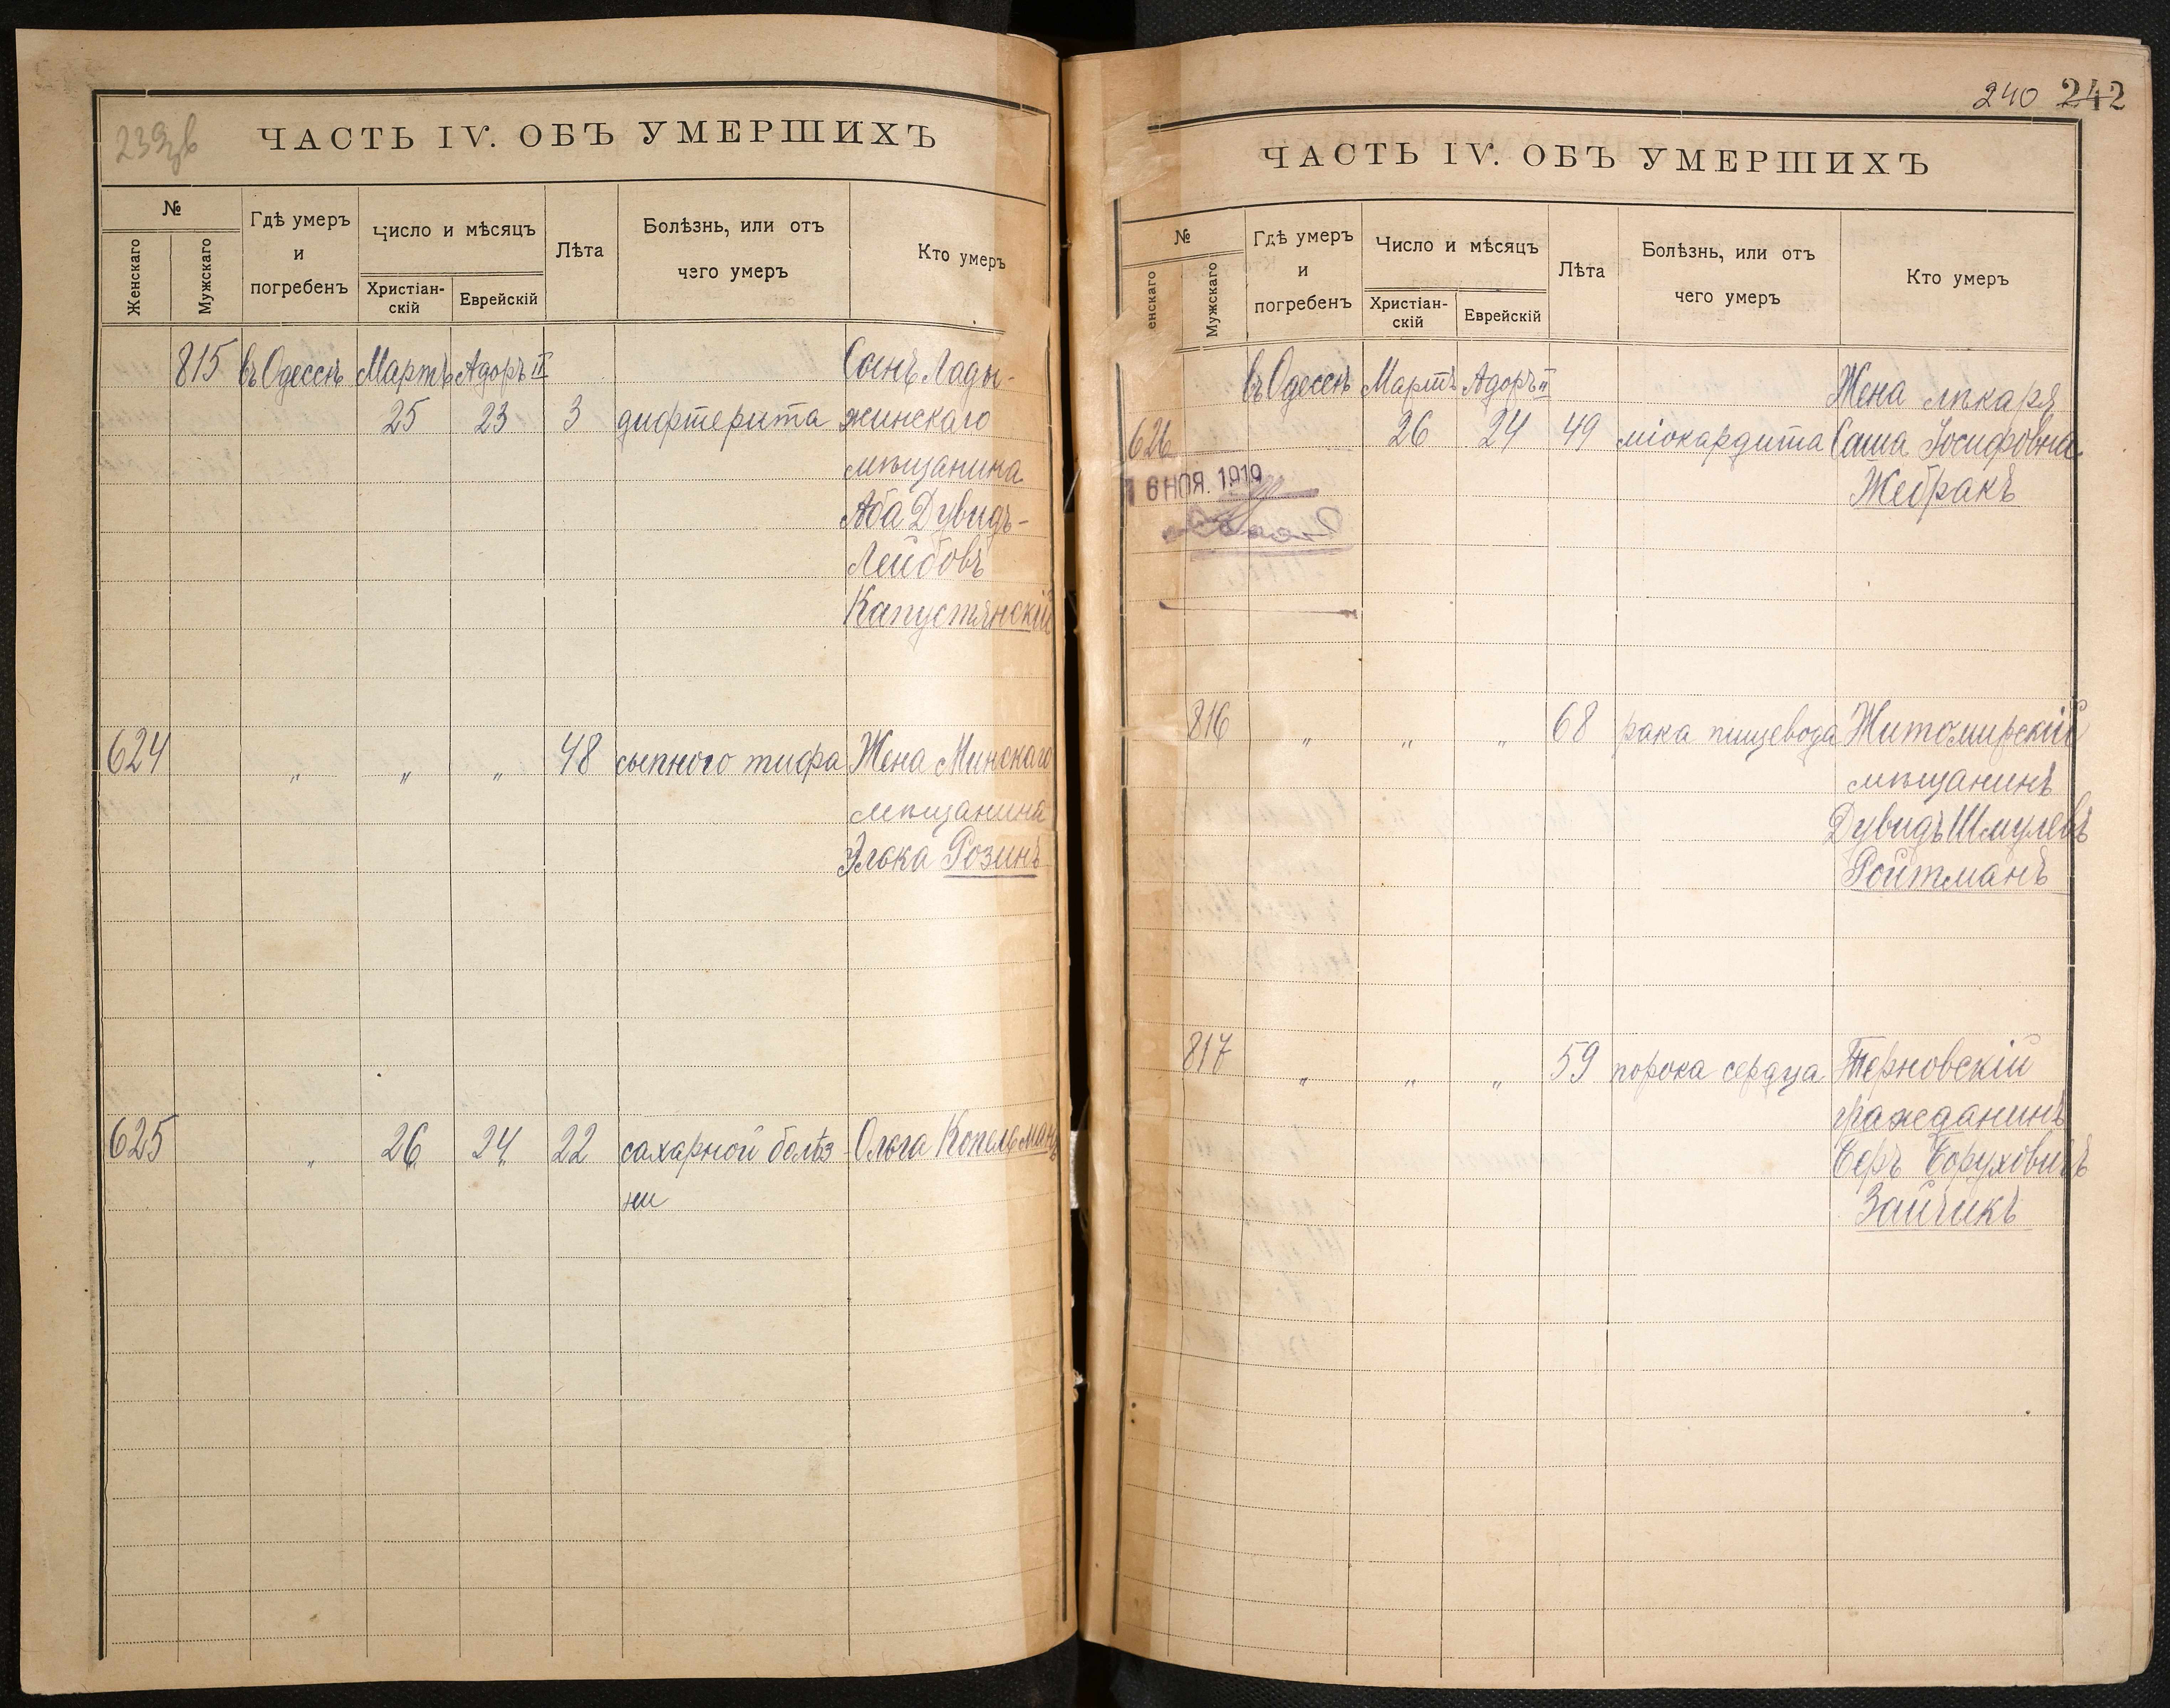 239 зв
ЧАСТЬ IV. ОБЪ УМЕРШИХЪ
№
Женскаго
Мужскаго
Гдѣ умеръ
и
погребенъ
Число и мѣсяцъ
Христіан-
скій
Еврейскій
Лѣта
Болѣзнь, или отъ
чего умеръ
Кто умеръ
815 въ Одессѣ Мартъ Адоръ II Сынъ Лады-
25 23 3 дифтерита жинскаго
мѣщанина
Аба Дувидъ-
Лейбовъ
Капустянскій
624 " " " 48 сыпного тифа Жена Минскаго
мѣщанина
Элька Розинъ
625 " 26 24 22 сахарной болѣз- Ольга Копельманъ
ни
240 242
ЧАСТЬ IV. ОБЪ УМЕРШИХЪ
№
енскаго
Мужскаго
Гдѣ умеръ
и
погребенъ
Число и мѣсяцъ
Христіан-
скій
Еврейскій
Лѣта
Болѣзнь, или отъ
чего умеръ
Кто умеръ
въ Одессѣ Мартъ Адоръ II Жена лѣкаря
626 26 24 49 міокардита Саша Іосифовна
16 НОЯ. 1919
Жебракъ
816 " " " 68 рака пищевода Житомирскій
мѣщанинъ
Дувидъ Шмулевъ
Ройтманъ
817 " " " 59 порока сердца Терновскій
гражданинъ
Беръ Боруховичъ
Зайчикъ